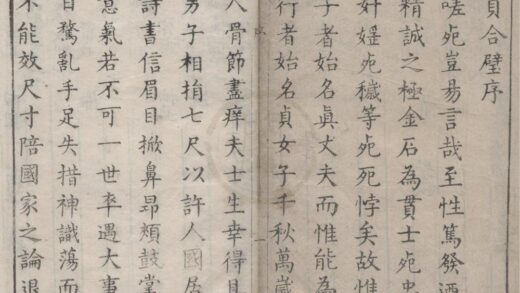 貞合璧序
嗟死豈易言哉至性篤發迺
精誠之極金石為貫士死忠
奸婬死穢等死死悖矣故惟
子者始名眞丈夫而惟能為
行者始名貞女子千秋萬歲
序 一
人骨節盡痒夫士生幸得具
男子相捐七尺以許人國居
詩書信眉目掀鼻昂頰鼓掌
意氣若不可一世卒遇大事
日驁亂手足失措神識蕩而
不能效尺寸陪國家之論退